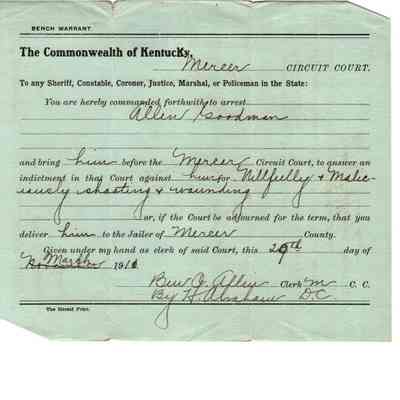 BENCH WARRANT.
The Commonwealth of Kentucky,
Mercer CIRCUIT COURT.
To any Sheriff, Constable, Coroner, Justice, Marshal, or Policeman in the State:
You are hereby commanded forthwith to arrest
Allen Goodman
and bring him before the Mercer Circuit Court, to answer an
indictment in that Court against him for Willfully & Malic-
iously shooting & wounding
or, if the Court be adjourned for the term, that you
deliver him to the Jailer of Mercer County.
Given under my hand as clerk of said Court, this 29th day of
March 191
Ben C. Allin Clerk M C. C.
By H. D.C.
The Herald Print.